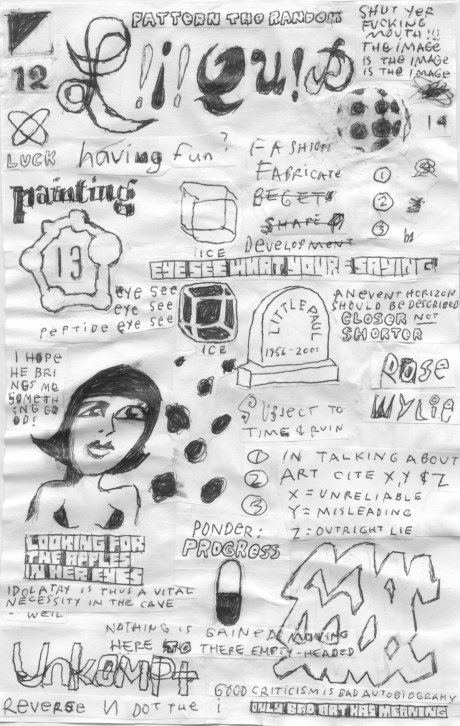 PATTERN THE RANDOM
SHUT YER
FUCKING
MOUTH!!!
THE IMAGE
IS THE IMAGE
IS THE IMAGE
L!i!Qu!D
12
14
LUCK
having fun?
FASHION
FABRICATE
BEGETS
SHAPE
DEVELOPMENT
1
2
3
painting
13
ICE
EYE SEE WHAT YOUR E SAYING
eye see
eye see
PEPTIDE eye see
ICE
LITTLE PAUL
1956-2001
AN EVENT HORIZON
SHOULD BE DESCRIBED
CLOSER NOT
SHORTER
ROSE
WYLIE
I HOPE
HE BRI
NGS ME
SOMETH
ING GO
OD!
SUBJECT TO
TIME & RUIN
1 IN TALKING ABOUT
2 ART CITE X, Y & Z
3 X = UNRELIABLE
Y = MISLEADING
Z = OUTRIGHT LIE
PONDER:
PROGRESS
LOOKING FOR
THE APPLES
IN HER EYES
IDOLATRY IS THUS A VITAL
NECESSITY IN THE CAVE
- WEIL
NOTHING IS GAINED MOVING
HERE TO THERE EMPTY-HEADED
UNKEMPT
REVERSE N DOT THE i
GOOD CRITICISM IS BAD AUTOBIOGRAPHY
ONLY BAD ART HAS MEANING